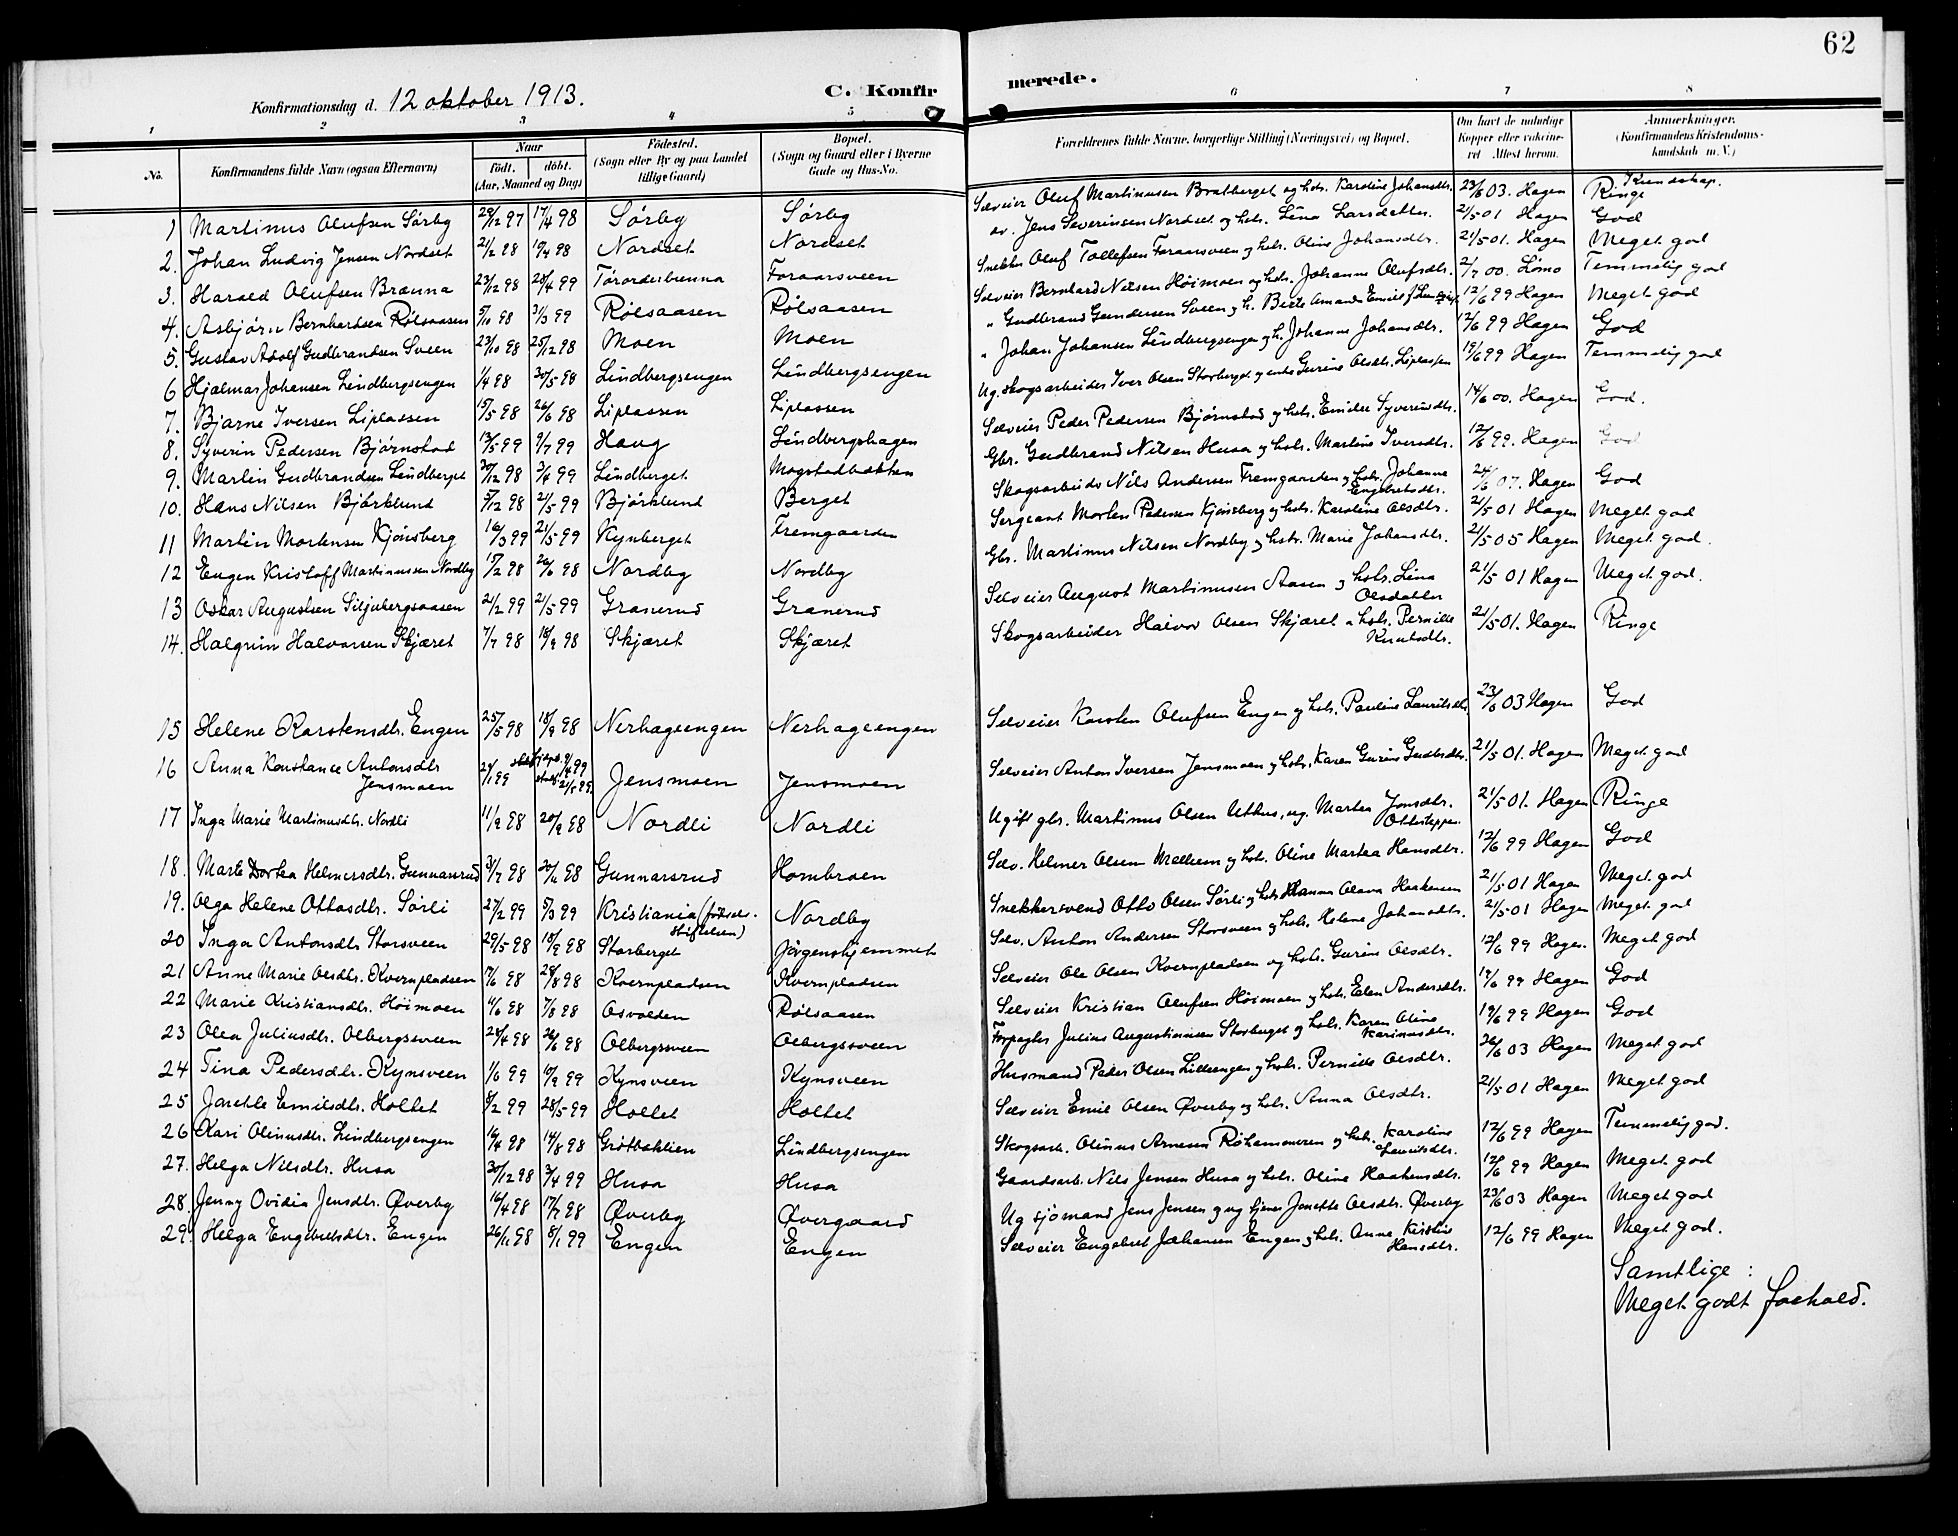 62
Konfirmationsdag d. 12 oktober 1913.
C. Konfirmerede.
1 2 3 4 5 6 7 8
No.
Konfirmandens fulde Navn (ogsaa Efternavn)
Naar
født. døbt.
(Aar, Maaned og Dag)
Fødested.
(Sogn eller By og paa Landet
tillige Gaard)
Bopæl.
(Sogn og Gaard eller i Byerne
Gade og Hus-No.
Forældrenes fulde Navne, borgerlige Stilling (Næringsvei) og Bopæl.
Om havt de naturlige
Kopper eller vakcineret Attest herom.
Anmerkninger.
(Konfirmandens Kristendomskundskab m. V.)
Kundskap.
1 Martinus Olufsen Sørby 29/12 97 17/4 98 Sørby Sørby Selveier Oluf Martinusen Bratberget og hstr. Karoline Johansdtr. 23/6 03. Hagen Ringe
2. Johan Ludvig Jensen Nordset 21/2 98 19/4 98 Nordset Nordset Jens Severinsen Nordset og hstr. Lina Larsdatter. 21/5 01 Hagen God
3. Harald Olufsen Brænna 23/12 98 23/4 99 Foraarsveen Snekker Oluf Tollefsen Foraarsveen og hstr. Oline Johansdtr. 21/5 01. Hagen Meget god
4. Asbjørn Bernhardsen Rølsaasen 5/10 98 3/3 99 Rølsaasen Rølsaasen Selveier Bernhard Nilsen Høimoen og hstr. Johanne Olufsdtr. 2/7 00. Lømo Temmelig god
5. Gustav Adolf Gudbrandsen Sveen 23/10 98 25/12 98 Moen Moen " Gudbrand Gundersen Sveen og h. Berte Amanda 12/6 99 Hagen Meget god
6 Hjalmar Johansen Lindbergsengen 1/4 98 30/5 98 Lindbergsengen Lindbergsengen " Johan Johansen Lindbergsengen og h. Johanne Johansdtr. 12/6 99 Hagen God
7. Bjarne Iversen Liplassen 15/5 98 26/6 98 Liplassen Liplassen Ug. skogsarbeider Iver Olsen Storberget og enke Gurine Olsdtr. Liplassen 19/6 99 Hagen Temmelig god
8. Syverin Pedersen Bjørnstad 13/5 99 9/7 99 Haug Lindbergshagen Selveier Peder Pedersen Bjørnstad og hstr. Emilie Syverinsdtr. 14/6 00. Hagen God.
9. Martin Gudbrandsen Lindberget 30/12 98 3/4 99 Lindberget Mogstadbakken Gbr. Gudbrand Nilsen Husa og hstr. Martine Iversdtr. 12/6 99. Hagen God
10. Hans Nilsen Bjørklund 5/12 98 21/5 99 Bjørklund Berget Skogsarbeider Nils Andersen Fremgaarden og hstr. Johanne Engebretsdtr. 24/6 07. Hagen God
11 Martin Mortensen Kjønsberg 16/3 99 21/5 99 Kynberget Fremgaarden Sergeant Morten Pedersen Kjønsberg og hstr. Karoline Olsdtr. 21/5 01 Hagen Meget god
12 Eugen Kristoff Martinussen Nordby 15/2 98 26/6 98 Nordby Nordby Gbr. Martinus Nilsen Nordby og hstr. Marie Johansdtr. 21/5 05 Hagen Meget god.
13 Oskar Augustsen Siljubergsaasen 21/2 99 21/5 99 Granerud Granerud Selveier August Martinusen Aasen og hstr. Lina Olsdatter 21/5 01 Hagen Meget god.
14. Halgrim Halvorsen Skjæret 7/7 98 18/9 98 Skjæret Skjæret Skogsarbeider Halvor Olsen Skjæret og hstr. Pernille Knutsdtr. 21/5 01. Hagen Ringe
15 Helene Karstensdtr. Engen 25/5 98 18/9 98 Nerhagengen Nerhagengen Selveier Karsten Olufsen Engen og hstr. Pauline Lauritsdtr. 23/6 03 Hagen God
16 Anna Konstance Antonsdtr Jensmoen 24/1 99 9/4 99 21/5 99. Jensmoen Jensmoen Selveier Anton Iversen Jensmoen og hstr. Karen Gurine Gudbrdtr. 21/5 01. Hagen Meget god
17 Inga Marie Martinusdtr. Nordli 11/9 98 20/9 98 Nordli Nordli Ugift gbr. Martinus Olsen Uthus, ug. Martea Jonsdtr. 21/5 01. Hagen Ringe
18. Marte Dortea Helmersdtr. Gunnarsrud 31/7 98 20/11 98 Gunnarsrud Hombroen Selv. Helmer Olsen Mellem og hstr. Oline Martea Hansdtr. 12/6 99 Hagen God
19. Olga Helene Ottosdtr. Sørli 27/2 99 5/3 99 Kristiania (fødselsstiftelsen) Nordby Snekkersvend Otto Olsen Sørli og hstr. Hanna Olava Haakensen 21/5 01 Hagen Meget god
20 Inga Antonsdtr Storsveen 29/5 98 18/9 98 Storberget Jørgenshjemmet Selv. Anton Andersen Storsveen og hstr. Helene Johansdtr. 21/5 01 Hagen Meget god
21 Anne Marie Olsdtr. Kvernpladsen 17/6 98 28/8 98 Kvernpladsen Kvernpladsen Selveier Ole Olsen Kvernpladsen og hstr. Gurine Olsdtr. 12/6 99 Hagen. Meget god
22 Marie Kristiansdtr. Høimoen 11/6 98 7/8 98 Osvolden Rølsaasen Selveier Kristian Olufsen Høimoen og hstr. Elen Andersdtr. 19/6 99 Hagen God
23 Olea Juliusdtr. Olbergsveen 28/4 98 26/6 98 Olbergsveen Olbergsveen Forpagter Julius Augustinusen Storberget og hstr. Karen Oline Karinusdtr. 19/6 99 Hagen God
24 Tina Pedersdtr. Kynsveen 1/6 99 10/9 99 Kynsveen Kynsveen Husmand Peder Olsen Lilleengen og hstr. Pernille Olsdtr. 26/6 03 Hagen Meget god
25 Josette Emilsdtr. Holtet 8/2 99 28/5 99 Holtet Holtet Selveier Emil Olsen Øverby og hstr. Anna Olsdtr. 21/5 01 Hagen Meget god
26 Kari Olinusdtr. Lindbergsengen 16/4 98 14/8 98 Grøtbakken Lindbergsengen Skogsarb. Olinus Arnesen Røhammeren og hstr. Karoline Lauritsdtr. 12/6 99 Hagen Temmelig god.
27. Helga Nilsdtr. Husa 30/12 98 3/4 99 Husa Husa Gaardsarb. Nils Jensen Husa og hstr. Oline Haakensdtr. 12/6 99 Hagen Meget god
28. Jenny Ovidia Jensdtr. Øverby 16/4 98 17/7 98 Øverby Øvergaard Ug sjømand Jens Jensen og ug tjener Josette Olsdtr. Øverby 23/6 03 Hagen Meget god
29. Helga Engebretsdtr. Engen 26/11 98 8/1 99 Engen Engen Selveier Engebret Johansen Engen og hstr. Anne Kristine Hansdtr. 12/6 99 Hagen Meget god.
Samtlige:
Meget godt forhold.